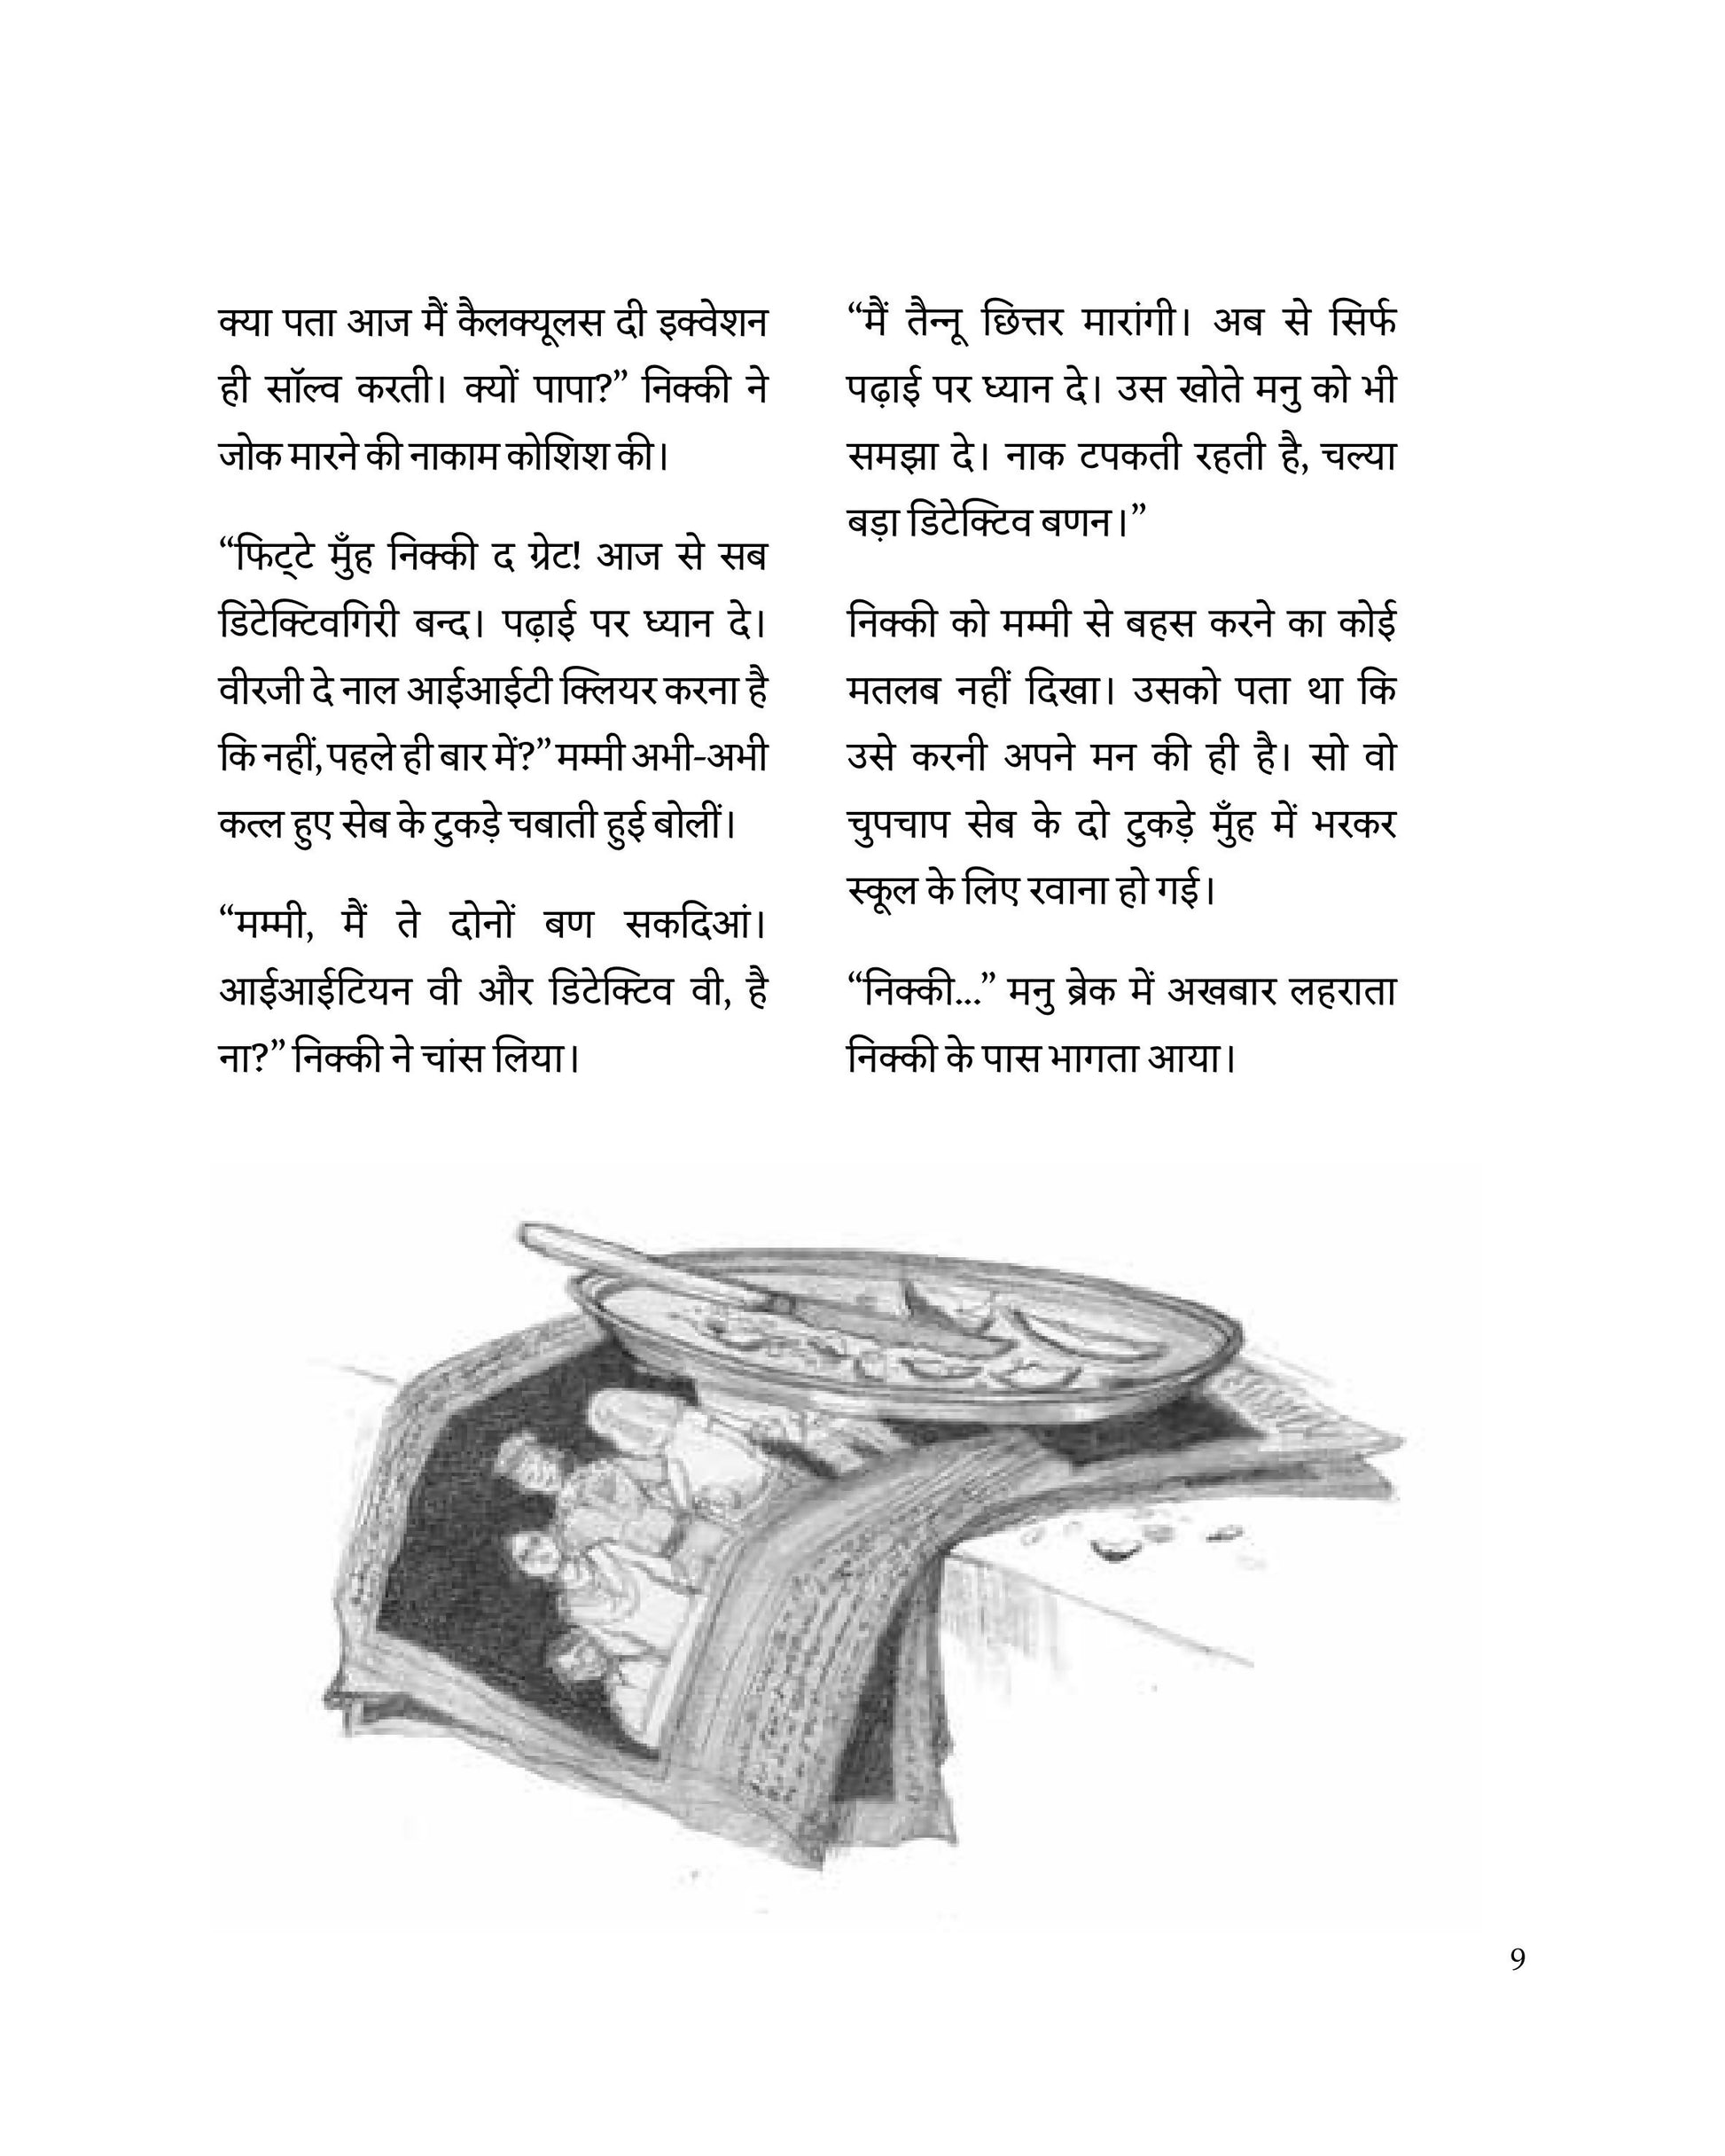 क्या पता आज मैं कैलक्यूलस दी इक्वेशन
ही सॉल्व करती। क्यों पापा?” निक्की ने
जोक मारने की नाकाम कोशिश की।
“फिट्टे मुँह निक्की द ग्रेट! आज से सब
डिटेक्टिवगिरी बन्द। पढ़ाई पर ध्यान दे।
वीरजी दे नाल आईआईटी क्लियर करना है
कि नहीं, पहले ही बार में?” मम्मी अभी-अभी
कत्ल हुए सेब के टुकड़े चबाती हुई बोलीं।
“मम्मी, मैं ते दोनों बण सकदिआं।
आईआईटियन वी और डिटेक्टिव वी, है
ना?” निक्की ने चांस लिया।
“मैं तैन्नू छित्तर मारांगी। अब से सिर्फ
पढ़ाई पर ध्यान दे। उस खोते मनु को भी
समझा दे। नाक टपकती रहती है, चल्या
बड़ा डिटेक्टिव बणन।”
निक्की को मम्मी से बहस करने का कोई
मतलब नहीं दिखा। उसको पता था कि
उसे करनी अपने मन की ही है। सो वो
चुपचाप सेब के दो टुकड़े मुँह में भरकर
स्कूल के लिए रवाना हो गई।
“निक्की...” मनु ब्रेक में अखबार लहराता
निक्की के पास भागता आया।
9